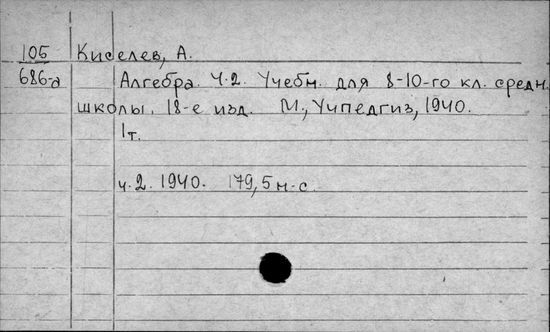 105 Киселев, А.
686-а Алгебра. Ч.2. Учебн. для 8-10-го кл. средн.
школы. 18-е изд. М., Учпедгиз, 1940.
1т.
ч.2. 1940. 179, 5 м-с.